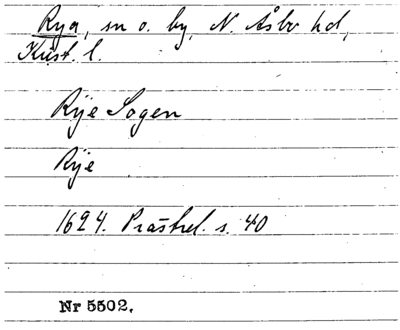 Rya, sn o. by, N. Åsbo hd,
Krist. l.
Rÿe Sogen
Rÿe
1624. Prästrel. s. 40
Nr 5502.